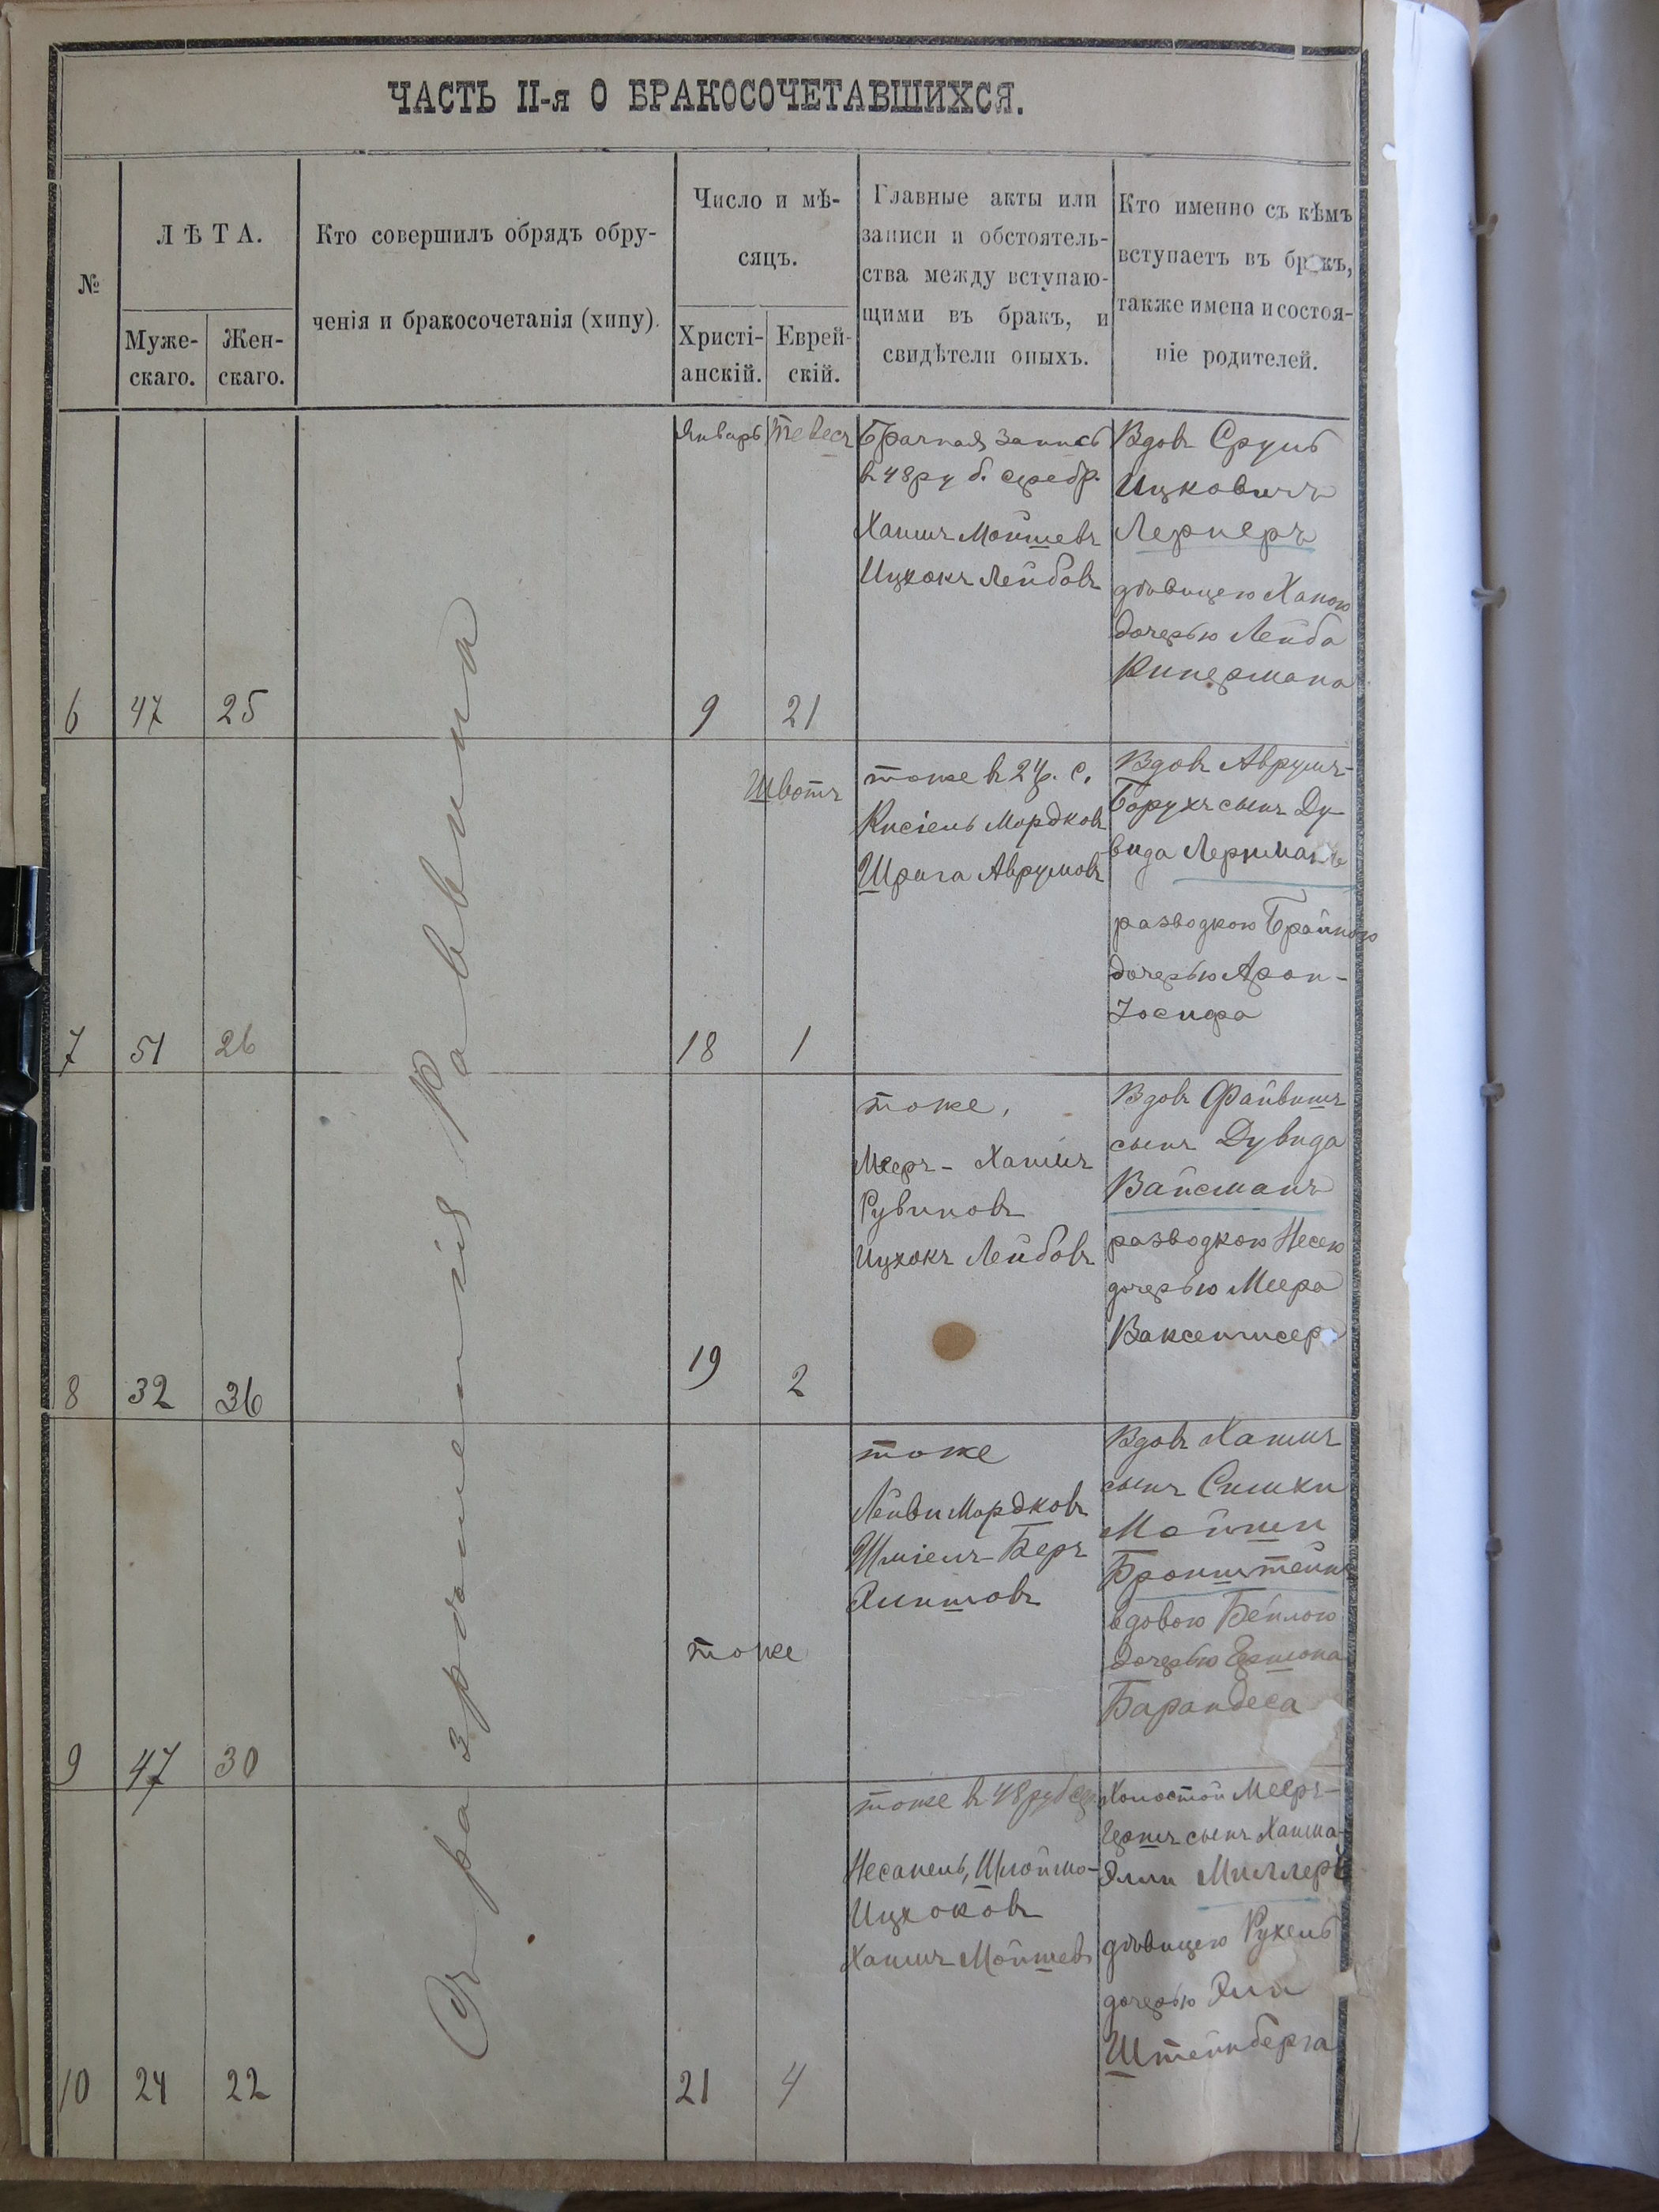 ЧАСТЬ II-я О БРАКОСОЧЕТАВШИХСЯ.
№
ЛѢТА.
Муже-
скаго.
Жен-
скаго.
Кто совершилъ обрядъ обру-
ченія и бракосочетанія (хипу).
Число и мѣ-
сяцъ.
Христі-
анскій.
Еврей-
скій.
Главные акты или
записи и обстоятель-
ства между вступаю-
щими въ бракъ, и
свидѣтели оныхъ.
Кто именно съ кѣмъ
вступаетъ въ бракъ,
также имена и состоя-
ніе родителей.
Съ разрѣшенія Раввина
6
47
25
Январь
9
Тевесъ
21
Брачная запись
в 48 руб. серебр.
Хаимъ Мошевъ
Ицхокъ Лейбовъ
Вдовъ Сруль
Ицковичъ
Лернеръ
дѣвицею Ханою
дочерью Лейба
Кипермана
7
51
26
18
Швотъ
1
тоже в 24 р. с.
Кисіель Мордковъ
Шрага Аврумовъ
Вдовъ Аврумъ-
Борухъ сынъ Ду-
вида Лерман
разводкою Брайною
дочерью Арон-
Іосифа
8
32
36
19
2
тоже,
Мееръ-Хаимъ
Рувиновъ
Ицхокъ Лейбовъ
Вдовъ Файвишъ
сынъ Дувида
Вайсманъ
разводкою Несею
дочерью Меера
9
47
30
тоже
тоже
Мордковъ
Шміелъ-Беръ
Вдовъ Хаимъ
сынъ Симхи
Мойши
Бронштейнъ
вдовою Бейлою
дочерью Гершона
Барандеса
10
24
22
21
4
тоже в 48 руб сер.
Несанель, Шлойма-
Ицхоковъ
Хаимъ Мойшевъ
Холостой Мееръ-
Гершъ сынъ Хаима-
Элли Миллеръ
дѣвицею Рухель
дочерью Эли
Штейнберга